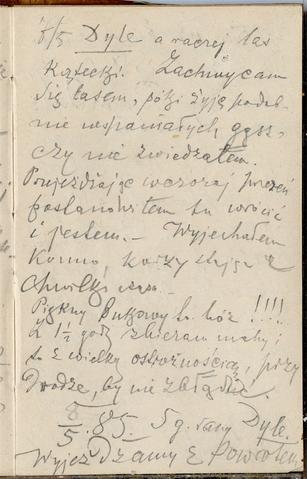 8/5 Dyle a raczej las
Kącecki. Zachwycam
się lasem, póki żyję podob-
nie wspaniałych gąsz-
czy nie zwiedzałem.
Przejeżdżając wczoraj przezeń
postanowiłem tu wrócić
i jestem.- Wyjechałem
konno,
chwilki
Piękny bukowy las !!!!
Z 1½ godz zbieram mchy i
to z wielką ostrożnością, przy
drodze, by nie zbłądzić.
8/5.85. 5 g. rano Dyle.
Wyjeżdżamy z powrotem